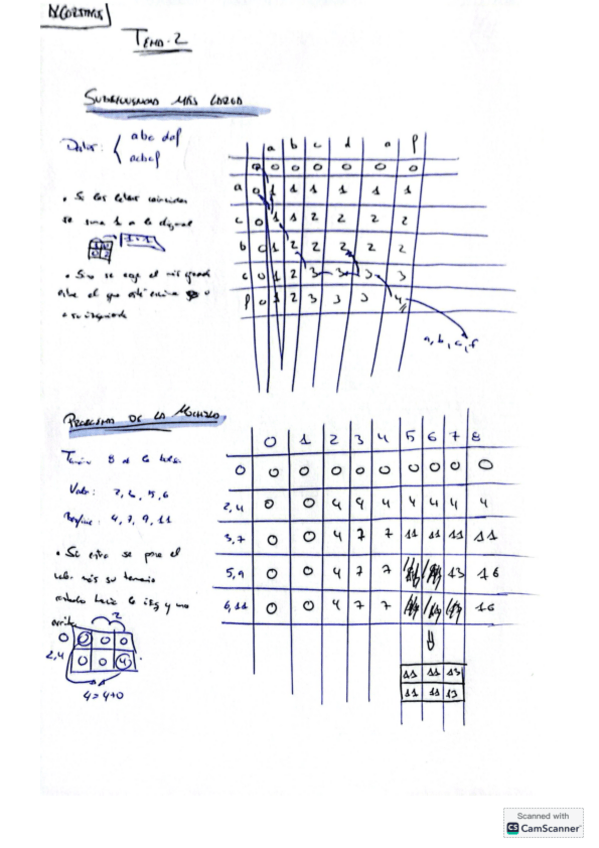 ALGORITMOS
TEMA·2
SUBSECUENCIA MÁS LARGA
Datos: { abc def
acbcf
a b c d e f
0 0 0 0 0 0 0
a 0 1 1 1 1 1 1
c 0 1 1 2 2 2 2
b 0 1 2 2 2 2 2
c 0 1 2 3 3 3 3
f 0 1 2 3 3 3 4
• Si las letras coinciden
se suma 1 a la diagonal
• Sino se coge el más grande
entre el que está encima o
a su izquierda
a, b, c, f
PROBLEMA DE LA MOCHILA
0 1 2 3 4 5 6 7 8
0 0 0 0 0 0 0 0 0 0
2,4 0 0 4 4 4 4 4 4 4
3,7 0 0 4 7 7 11 11 11 11
5,9 0 0 4 7 7 13 16
6,11 0 0 4 7 7 16
11 11 13
11 11 13
8
• Si entra se pone el
valor más su tamaño
hacia la izq y uno
arriba
2
0 0 0 0
2,4 0 0 4
4=4+0
Scanned with
CS CamScanner